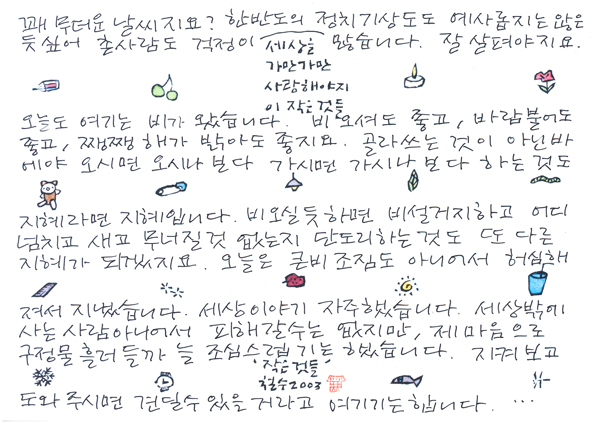 꽤 무더운 날씨지요? 한반도의 정치기상도도 예사롭지는 않은
듯 싶어 촌사람도 걱정이 많습니다. 잘 살펴야지요.
세상을
가만가만
사랑해야지
이 작은 것들
오늘도 여기는 비가 왔습니다. 비 오셔도 좋고, 바람불어도
좋고, 쨍쨍 해가 밝아도 좋지요. 골라쓰는 것이 아닌바
에야 오시면 오시나 보다 가시면 가시나 보다 하는 것도
지혜라면 지혜입니다. 비오실듯하면 비설거지하고 어디
넘치고 새고 무너질 것 없는지 단도리하는 것도 또 다른
지혜가 되겠지요. 오늘은 큰비 조짐도 아니어서 허심해
져서 지냈습니다. 세상이야기 자주했습니다. 세상밖에
사는 사람아니어서 피해갈수는 없지만, 제 마음으로
구정물 흘러 들까 늘 조심스럽기는 했습니다. 지켜보고
"작은 것들"
철수2003
도와 주시면 견딜수 있을 거라고 여기기는합니다. ...